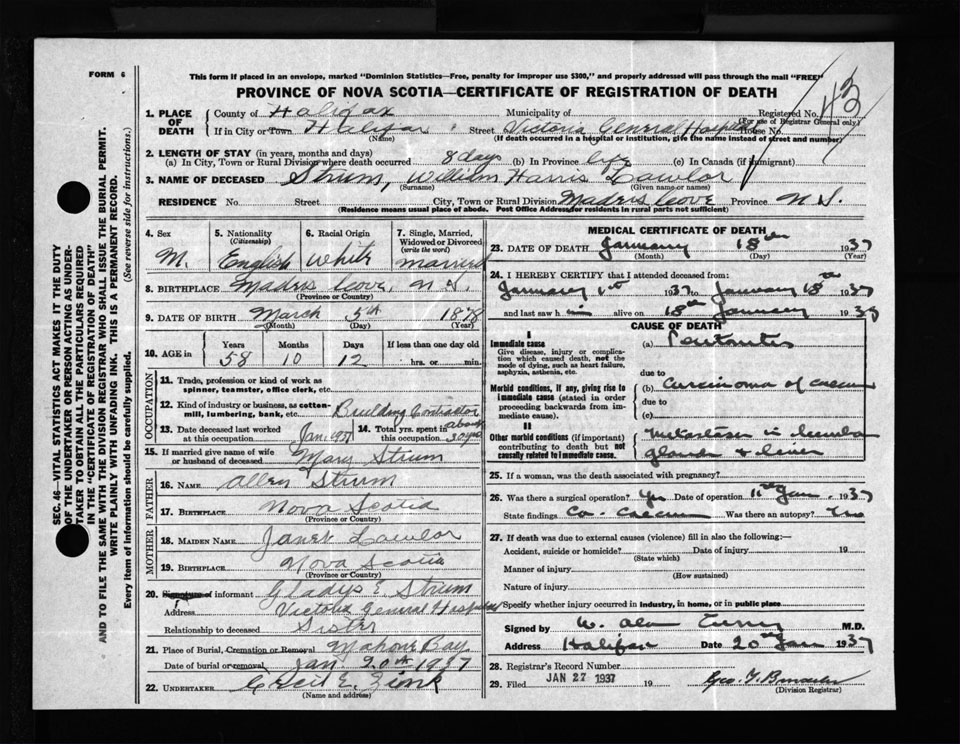 FORM 6
This form if placed in an envelope, marked "Dominion Statistics—Free, penalty for improper use $300," and properly addressed will pass through the mail "FREE"
PROVINCE OF NOVA SCOTIA—CERTIFICATE OF REGISTRATION OF DEATH
1. PLACE OF DEATH
County of Halifax Municipality of Registered No. 43
(For use of Registrar General only)
If in City or Town Halifax Street Victoria General Hospital House No.
(Name) (If death occurred in a hospital or institution, give the name instead of street and number)
2. LENGTH OF STAY (in years, months and days)
(a) In City, Town or Rural Division where death occurred 8 days (b) In Province life (c) In Canada (if immigrant)
3. NAME OF DECEASED Strum, William Harris Lawlor
(Surname) (Given name or names)
RESIDENCE No. Street City, Town or Rural Division Maders Cove Province N.S.
(Residence means usual place of abode. Post Office Address for residents in rural parts not sufficient)
4. Sex
M.
5. Nationality
(Citizenship)
English
6. Racial Origin
White
7. Single, Married, Widowed or Divorced
(write the word)
Married
8. BIRTHPLACE Maders Cove, N.S.
(Province or Country)
9. DATE OF BIRTH March 5th 1878
(Month) (Day) (Year)
10. AGE in
Years Months Days If less than one day old
58 10 12 hrs. or min.
OCCUPATION
11. Trade, profession or kind of work as spinner, teamster, office clerk, etc.
12. Kind of industry or business, as cotton-mill, lumbering, bank, etc. Building Contractor
13. Date deceased last worked at this occupation Jan. 1937
14. Total yrs. spent in this occupation about 30 yrs
15. If married give name of wife or husband of deceased Mary Strum
FATHER
16. NAME Allen Strum
17. BIRTHPLACE Nova Scotia
(Province or Country)
MOTHER
18. MAIDEN NAME Janet Lawlor
19. BIRTHPLACE Nova Scotia
(Province or Country)
20. Signature of informant Gladys E. Strum
Address Victoria General Hospital
Relationship to deceased Sister
21. Place of Burial, Cremation or Removal Mahone Bay
Date of burial or removal Jan. 20th 1937
22. UNDERTAKER E. Zink
(Name and address)
MEDICAL CERTIFICATE OF DEATH
23. DATE OF DEATH January 18th 1937
(Month) (Day) (Year)
24. I HEREBY CERTIFY that I attended deceased from:
January 1st 1937 to January 18th 1937
and last saw him alive on 18th January 1937
CAUSE OF DEATH
I
Immediate cause
Give disease, injury or complication which caused death, not the mode of dying, such as heart failure, asphyxia, asthenia, etc.
(a) Peritonitis
due to
Morbid conditions, if any, giving rise to immediate cause (stated in order proceeding backwards from immediate cause).
(b) Carcinoma of caecum
due to
(c)
II
Other morbid conditions (if important) contributing to death but not causally related to immediate cause.
Metastases in lumbar
glands & liver
25. If a woman, was the death associated with pregnancy?
26. Was there a surgical operation? Yes Date of operation 11th Jan. 1937
State findings Ca. Caecum Was there an autopsy? No
27. If death was due to external causes (violence) fill in also the following:—
Accident, suicide or homicide? Date of injury 19
(State which)
Manner of injury
(How sustained)
Nature of injury
Specify whether injury occurred in industry, in home, or in public place
Signed by W. Alan Curry M.D.
Address Halifax Date 20th Jan 1937
28. Registrar's Record Number
29. Filed JAN 27 1937 19
(Division Registrar)
SEC. 46—VITAL STATISTICS ACT MAKES IT THE DUTY
OF THE UNDERTAKER OR PERSON ACTING AS UNDERTAKER TO OBTAIN ALL THE PARTICULARS REQUIRED
IN THE "CERTIFICATE OF REGISTRATION OF DEATH"
AND TO FILE THE SAME WITH THE DIVISION REGISTRAR WHO SHALL ISSUE THE BURIAL PERMIT.
WRITE PLAINLY WITH UNFADING INK. THIS IS A PERMANENT RECORD.
Every item of information should be carefully supplied. (See reverse side for instructions.)